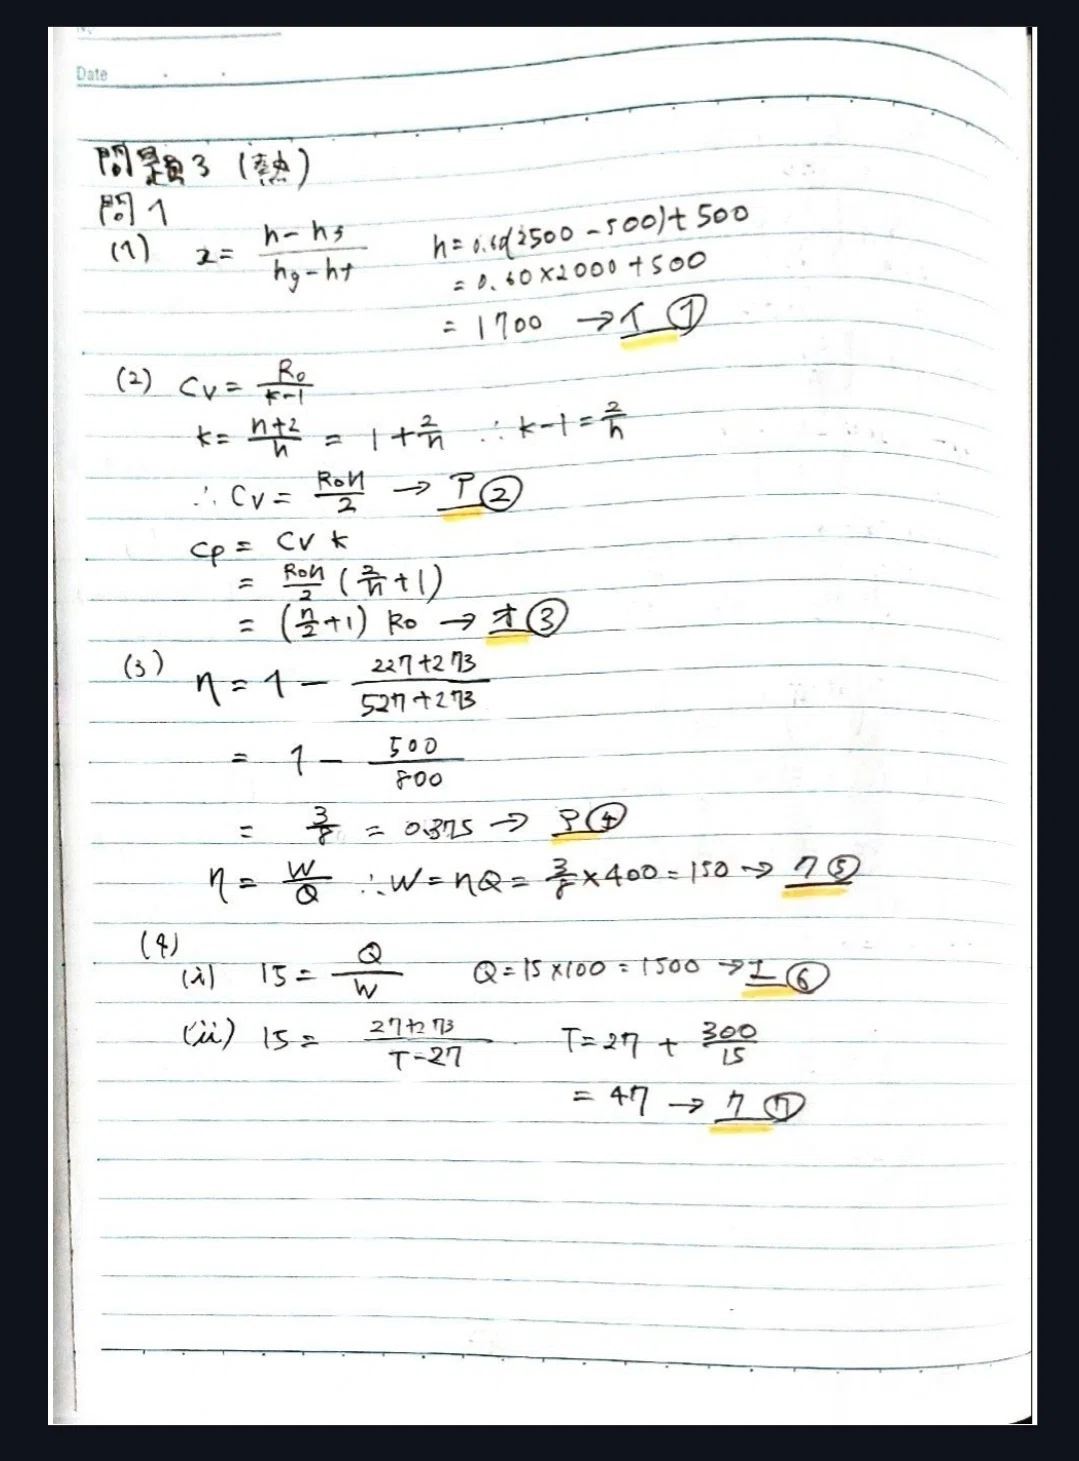 Date
問題3 (熱)
問1
(1) x = (h-hf)/(hg-hf) h = 0.60(2500-500)+500
= 0.60×2000+500
= 1700 → イ ①
(2) Cv = R₀/(k-1)
k = (n+2)/n = 1+2/n ∴ k-1 = 2/n
∴ Cv = R₀n/2 → ア ②
Cp = Cv k
= R₀n/2 (2/n+1)
= (n/2+1) R₀ → オ ③
(3) η = 1 - (227+273)/(527+273)
= 1 - 500/800
= 3/8 = 0.375 → ④
η = W/Q ∴ W = ηQ = 3/8×400 = 150 → ⑤
(4)
(i) 15 = Q/W Q = 15×100 = 1500 → エ ⑥
(ii) 15 = (27+273)/(T-27) T = 27 + 300/15
= 47 → ⑦